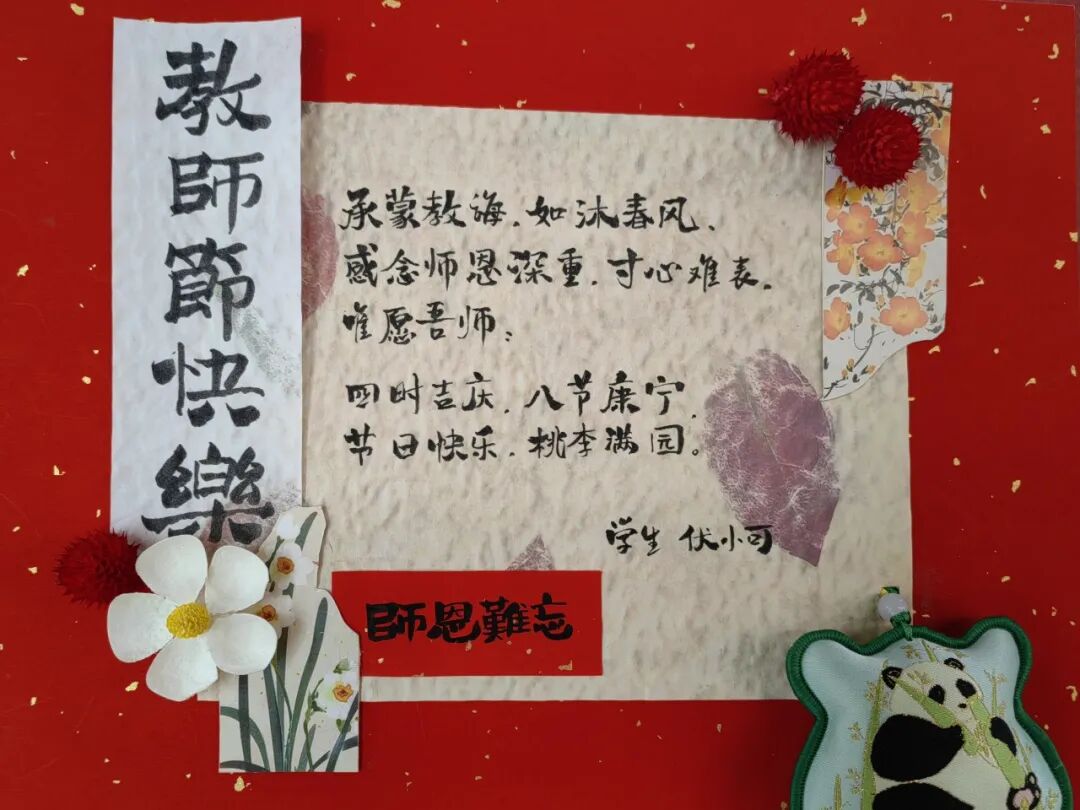 教師節快樂
承蒙教诲，如沐春风、
感念师恩深重，寸心难表，
唯愿吾师：
四时吉庆，八节康宁，
节日快乐，桃李满园。
学生 伏小可
師恩難忘